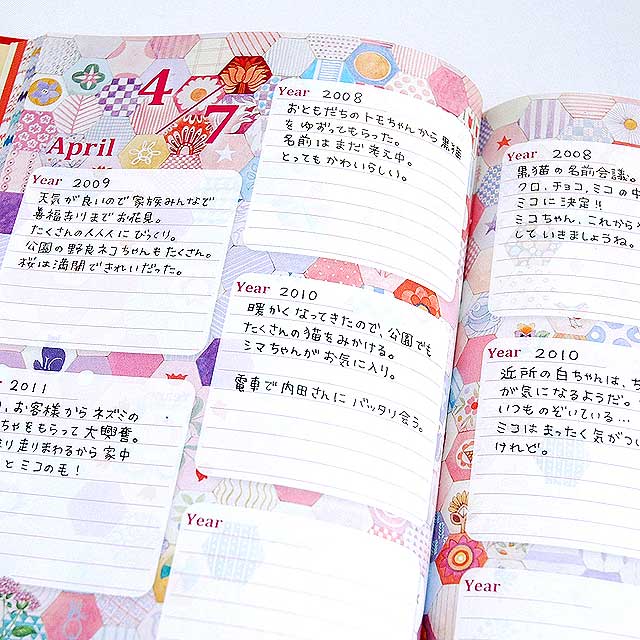 4
7
April
Year 2008
おともだちのトモちゃんから黒猫
をゆずってもらった。
名前はまだ考え中。
とってもかわいらしい。
Year 2009
天気が良いので家族みんなで
善福寺川までお花見。
たくさんの人人人にびっくり。
公園の野良ネコちゃんもたくさん。
桜は満開できれいだった。
Year 2010
暖かくなってきたので、公園でも
たくさんの猫をみかける。
シマちゃんがお気に入り。
電車で内田さんにバッタリ会う。
2011
、お客様からネズミの
ちゃをもらって大興奮。
走りまわるから家中
とミコの毛！
Year
Year 2008
黒猫の名前会議。
クロ、チョコ、ミコの中
ミコに決定!!
ミコちゃん、これから
していきましょうね。
Year 2010
近所の白ちゃんは、
が気になるようだ。
いつものぞいている…
ミコはまったく気がつ
けれど。
Year